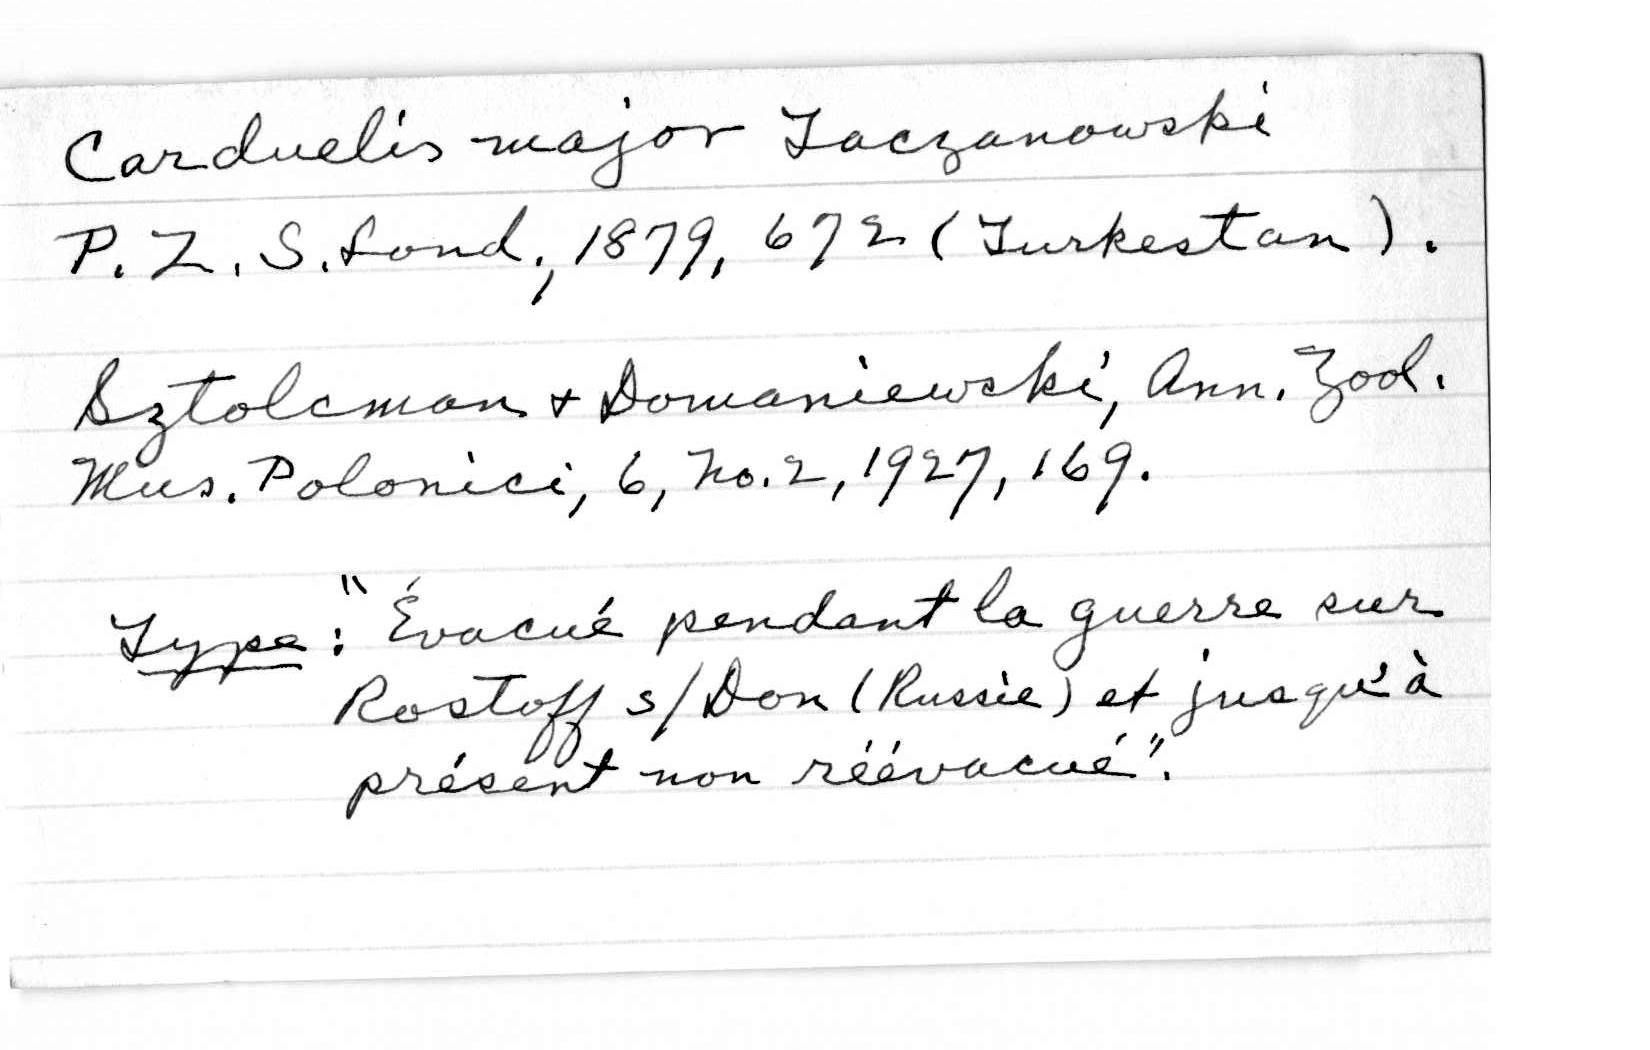 Carduelis major Taczanowski
P. Z. S. Lond., 1879, 672 (Turkestan).
Sztolcman + Domaniewski, Ann. Zool.
Mus. Polonici, 6, No. 2, 1927, 169.
Type: "Évacué pendant la guerre sur
Rostoff s/Don (Russie) et jusqu'à
présent non réévacué".